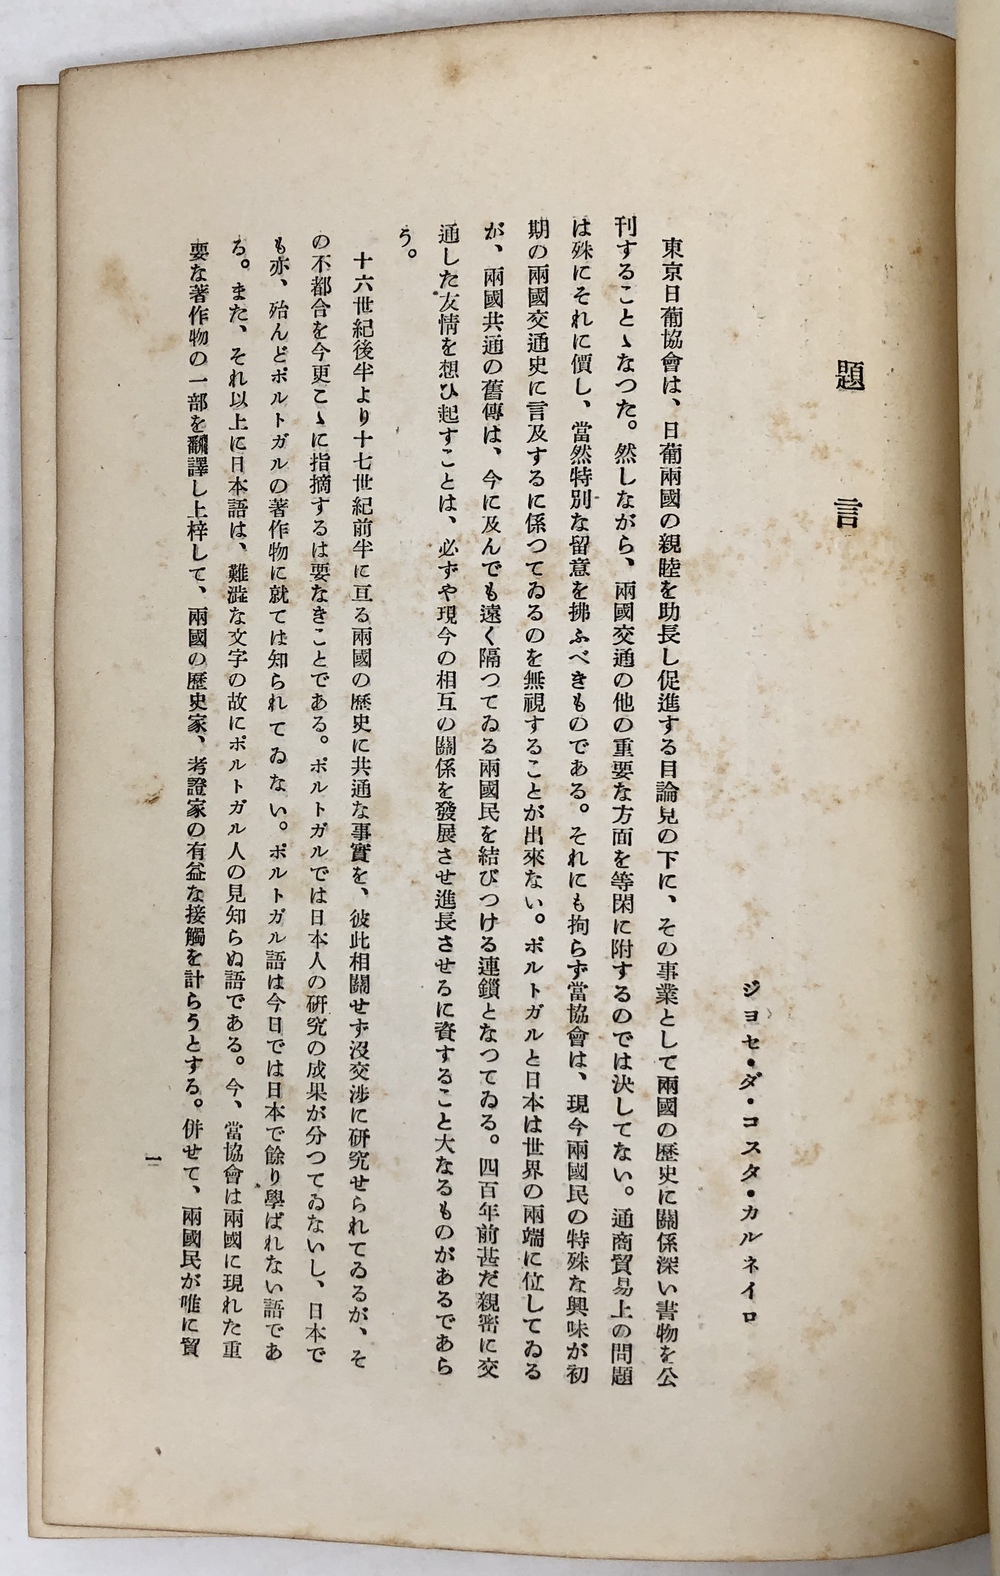 題言
ジヨセ・ダ・コスタ・カルネイロ
東京日葡協會は、日葡兩國の親睦を助長し促進する目論見の下に、その事業として兩國の歷史に關係深い書物を公
刊することゝなつた。然しながら、兩國交通の他の重要な方面を等閑に附するのでは決してない。通商貿易上の問題
は殊にそれに價し、當然特別な留意を拂ふべきものである。それにも拘らず當協會は、現今兩國民の特殊な興味が初
期の兩國交通史に言及するに係つてゐるのを無視することが出來ない。ポルトガルと日本は世界の兩端に位してゐる
が、兩國共通の舊傳は、今に及んでも遠く隔つてゐる兩國民を結びつける連鎖となつてゐる。四百年前甚だ親密に交
通した友情を想ひ起すことは、必ずや現今の相互の關係を發展させ進長させるに資すること大なるものがあるであら
う。
十六世紀後半より十七世紀前半に亘る兩國の歷史に共通な事實を、彼此相關せず沒交涉に硏究せられてゐるが、そ
の不都合を今更こゝに指摘するは要なきことである。ポルトガルでは日本人の硏究の成果が分つてゐないし、日本で
も亦、殆んどポルトガルの著作物に就ては知られてゐない。ポルトガル語は今日では日本で餘り學ばれない語であ
る。また、それ以上に日本語は、難澁な文字の故にポルトガル人の見知らぬ語である。今、當協會は兩國に現れた重
要な著作物の一部を飜譯し上梓して、兩國の歷史家、考證家の有益な接觸を計らうとする。併せて、兩國民が唯に貿
一